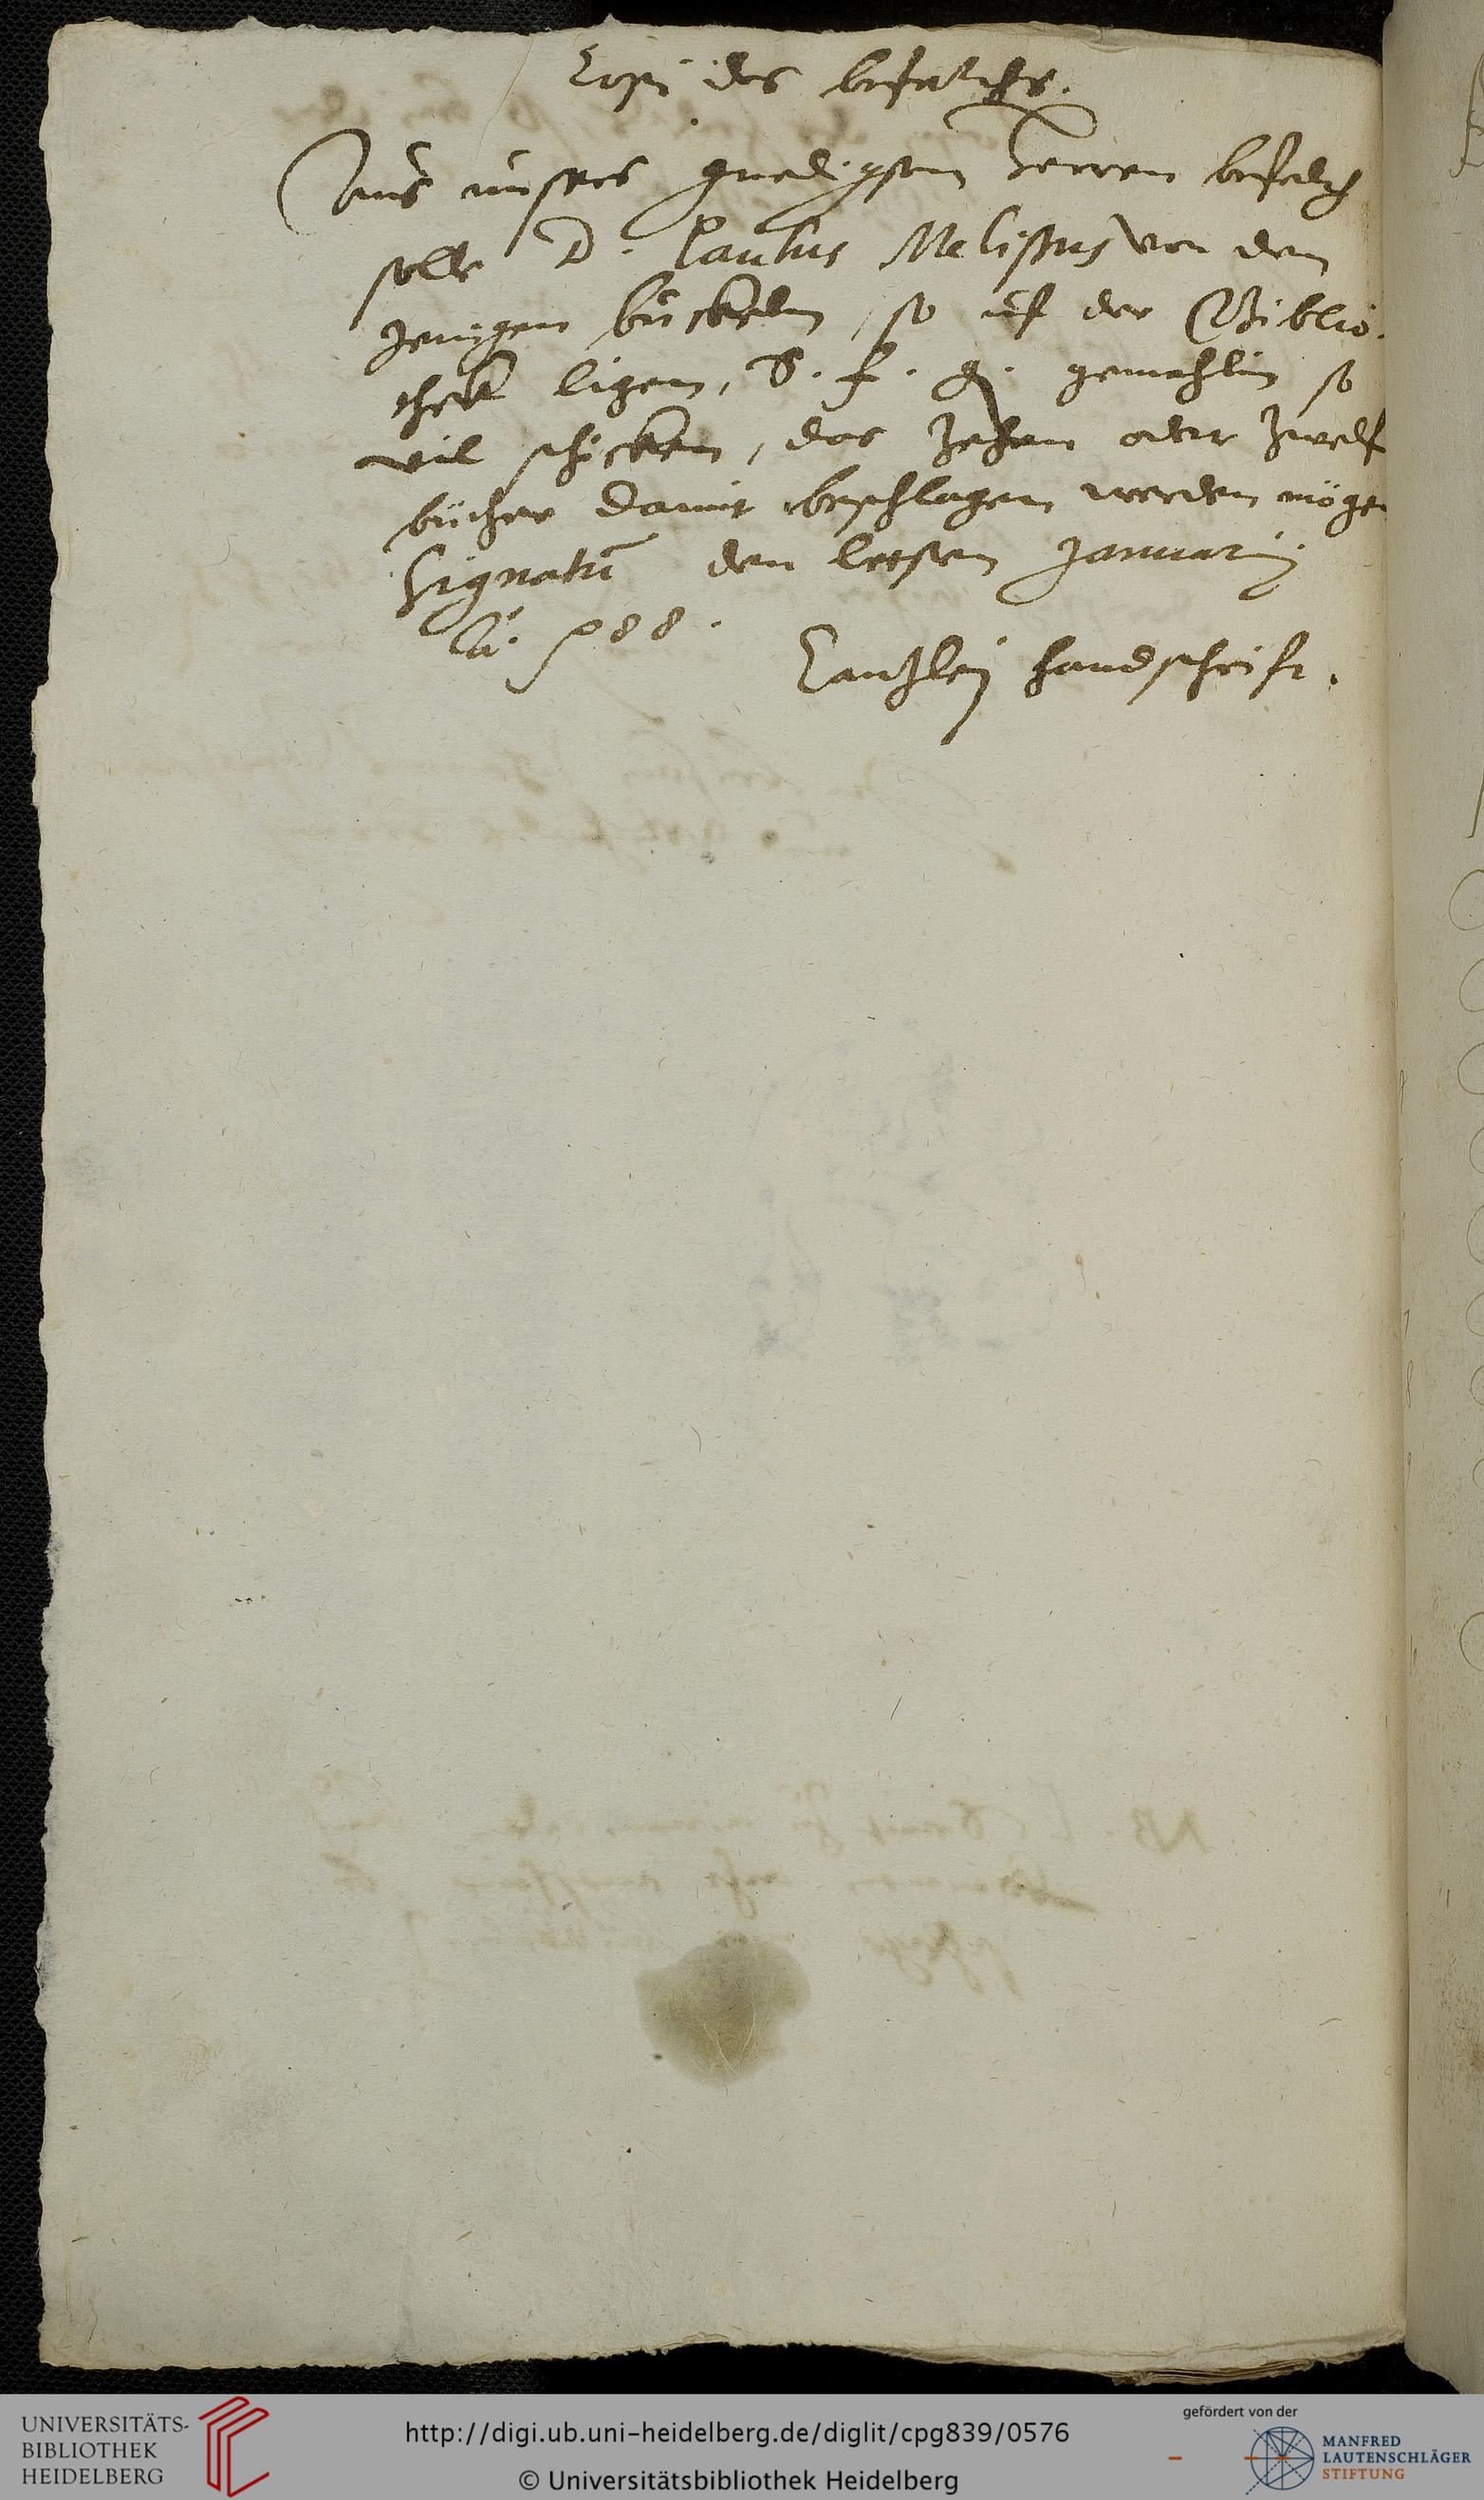 Copi des befelchs.
Aus unsers gnedigsten Herren befelch
solle D. Paulus Melissus von den
Jenigen bückeln, so uf der Biblio-
thek ligen, S. f. g. gemahlin so
vil schicken, das Zehen oder Zwelf
bücher damit beschlagen werden mögen
Signatū den letsten Januarij
Aº. 88.
Cantzleÿ handschrift.
UNIVERSITÄTS-
BIBLIOTHEK
HEIDELBERG
http://digi.ub.uni-heidelberg.de/diglit/cpg839/0576
© Universitätsbibliothek Heidelberg
gefördert von der
MANFRED
LAUTENSCHLÄGER
STIFTUNG